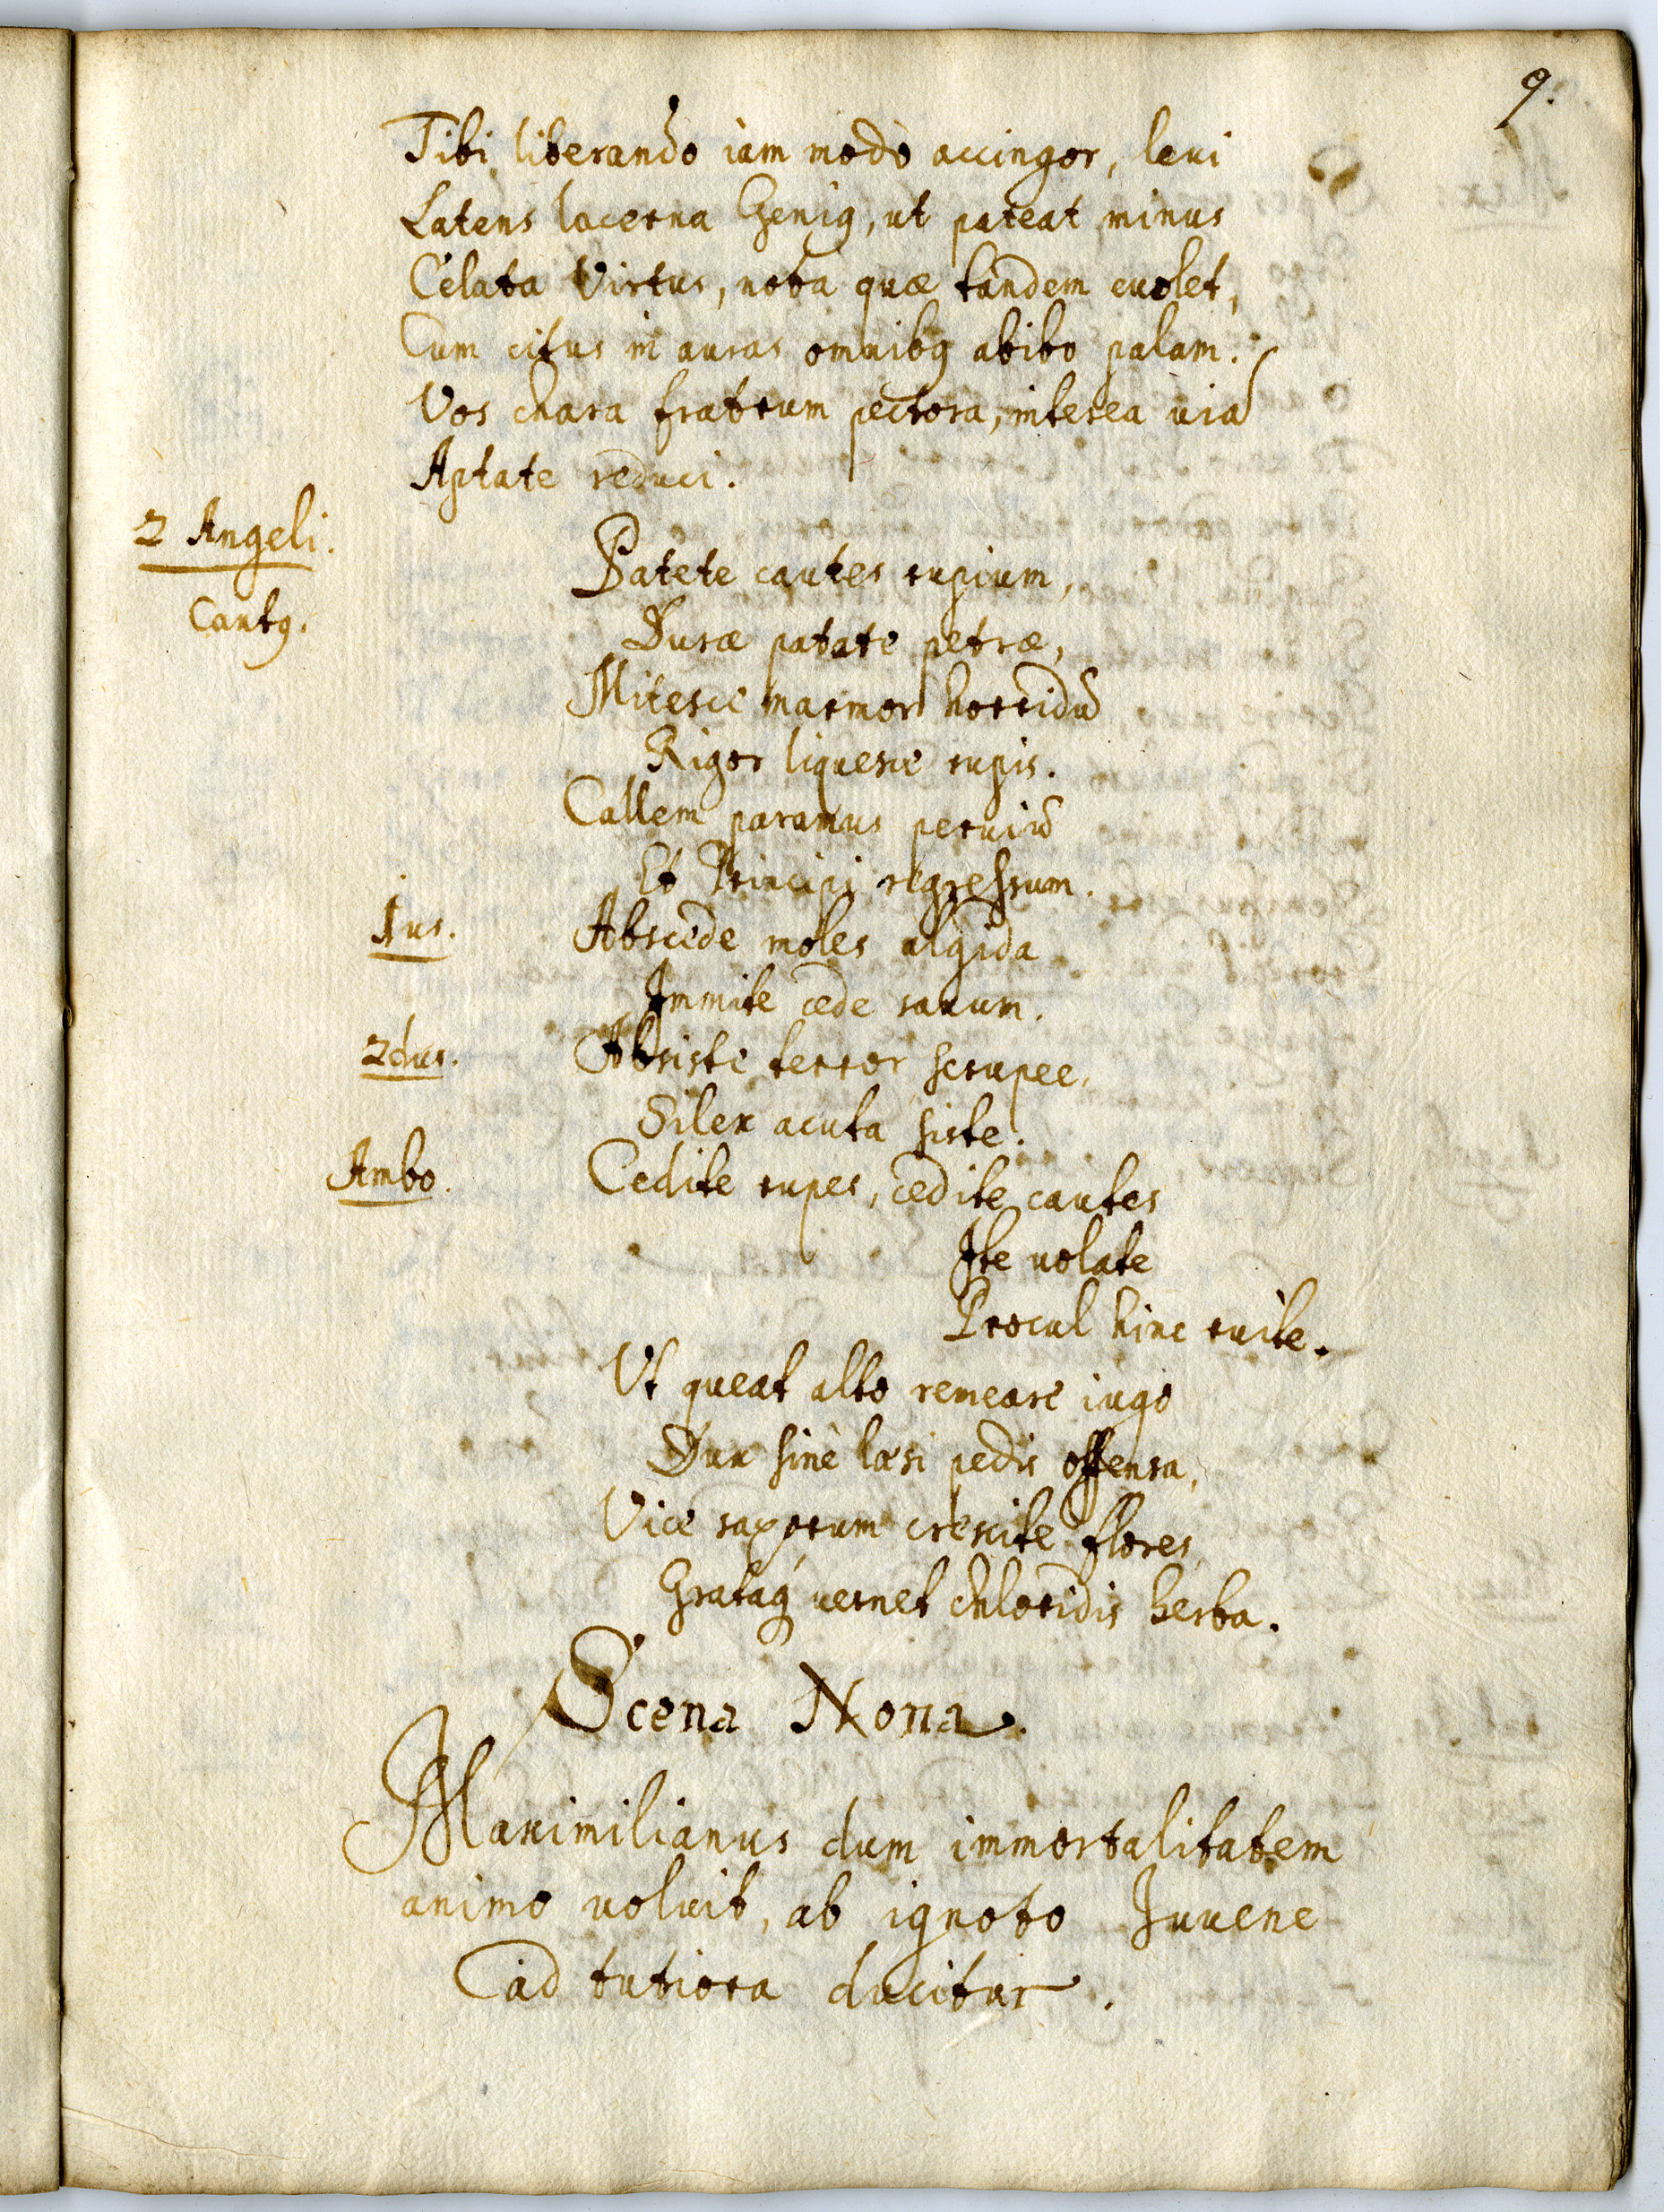 9.
Tibi liberando iam modò accingor, leui
Latens lacerna Geniꝰ, ut pateat minus
Celata Virtus, nota quæ tandem euolet,
Cum citus in auras omnibꝰ abibo palam.
Vos chara fratrum pectora, interea uiā
Aptate reduci.
2 Angeli.
Cantꝰ.
Patete cautes rupium,
Duræ patate petræ,
Mitesce marmor horridū
Rigor liquesce rupis.
Callem paramus peruiū
Et Principi regressum.
1us. Abscede moles algida
Immite cede saxum.
2dus. Absiste terror scrupee,
Silex acuta siste.
Ambo. Cedite rupes, cedite cautes
Ite uolate
Procul hinc ruite.
Vt queat alto remeare iugo
Dux sinè læsi pedis offensa,
Vice saxorum crescite flores
Grataq́ vernet chloridis herba.
Scena Nona.
Maximilianus dum immortalitatem
animo voluit, ab ignoto Iuuene
ad tutiora ducitur.